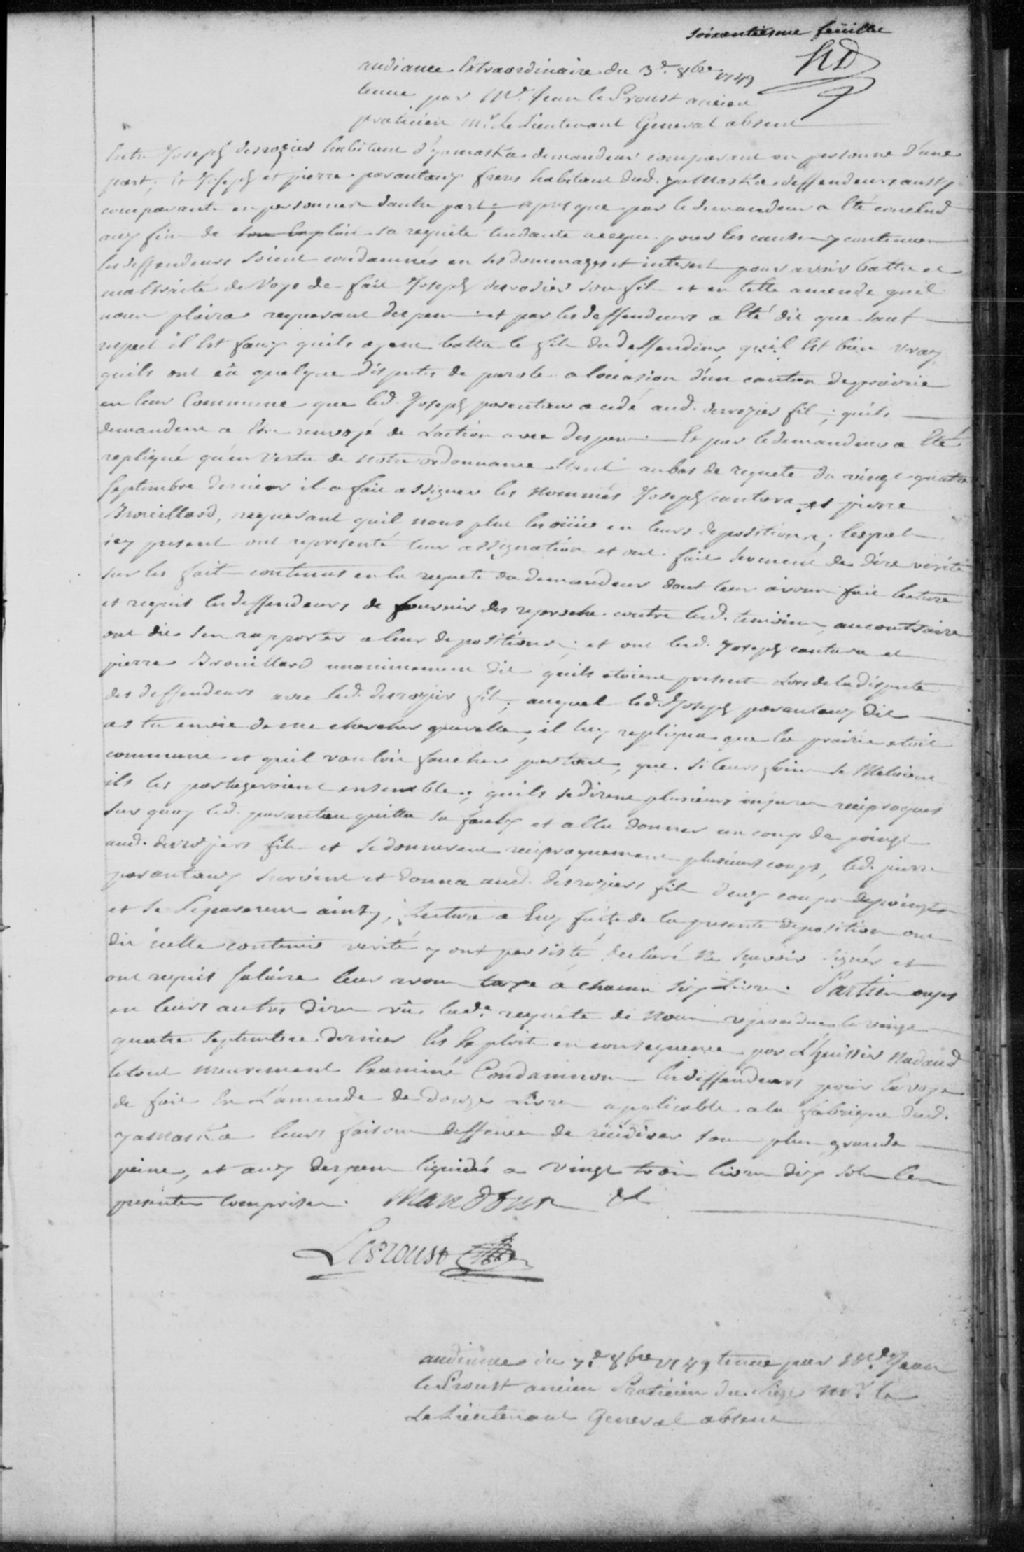 soixantiesme feüille
audiance Extraordinaire du 3e. 8bre 1749
tenue par Mr. Jean le Proust ancien
praticien Mr. le Lieutenant General absent
Entre Joseph desrozier habitant d'yamaska demandeur comparant en personne d'une
part, et Joseph et pierre parantaux freres habitant dud. yamaska deffendeurs aussy
comparants en personnes dautre part, apres que par le demandeur a Eté conclud
aux fin de sa requête tendante a ceque pour les causes y contenues
les deffendeurs soient condamnés en ses dommages et interest pour avoir battu et
maltraité de Voye de fait Joseph desrosier son fils et en telle amende quil
nous plaira requerant despens et par les deffendeurs a Eté dit que sauf
respect il Est faux quils ayent battu le fils du deffendeur, quil Est bien vray
quils ont eü quelque disputes de parole a loccasion d'un canton de prairie
en leur Commune que led. Joseph parentaux a cedé aud. desrozier fils; quils
demandent a Etre renvoyé de L'action avec despens Et par le demandeur a Eté
repliqué qu'en vertu de notre ordonnance Etant au bas de requete du vingt quatre
Septembre dernier il a fait assigner les Nommés Joseph cantara et pierre
Brouillard, requerant quil nous plut les oüir en leurs depositions, lesquels
icy present ont representé leur assignation et ont fait serment de dire vérité
sur les fait contenus en la requete du demandeur dont leur avons fait lecture
et requis les deffendeurs de fournir des reproche contre led. temoins, au contraire
ont dit s'en rapporter a leur depositions; et ont led. Joseph cantara et
pierre Brouillard unanimement dit quils etoient present Lors de la dispute
des deffendeurs avec led. desrozier fils, auquel led. Joseph parantaux dit
as tu envie de me chercher querelle, il luy repliqua que la prairie etoit
commune et quil vouloit faucher partout, que si leurs foins se Meloient
ils les partageroient ensemble; quils se dirent plusieurs injures reciproques
sur quoy led. parantau quitta sa faulx et alla donner un coup de poing
aud. desrosiers fils et se donnerent reciproquement plusieurs coups, led. pierre
parantaux survint et donna aud. desroziers fils deux coups de poings
et se Separerent ainsy; Lecture a Eux faite de la presente deposition ont
dit icelle contenir verité y ont persisté declaré ne sçavoir signer et
ont requis salaire leur avons taxé a chacun six Livres. Parties ouyes
en leurs autres dires vû lade. requete de Nous repondue le vingt
quatre septembre dernier les Exploit en consequence par L'huissier Nadaud
le tout meurement Examiné Condamnons les deffendeurs pour la voye
de fait En L'amende de douze Livres applicable a la fabrique dud.
yamaska leurs faisons deffences de recidiver sous plus grande
peine, et aux despens liquidés a vingt trois livres dix sols les
presentes comprises. Mandons &
LeProust
audiance du 7e 8bre 1749 tenue par Mr. Jean
le Proust ancien Praticien du siege Mr. le
Le Lieutenant General absent